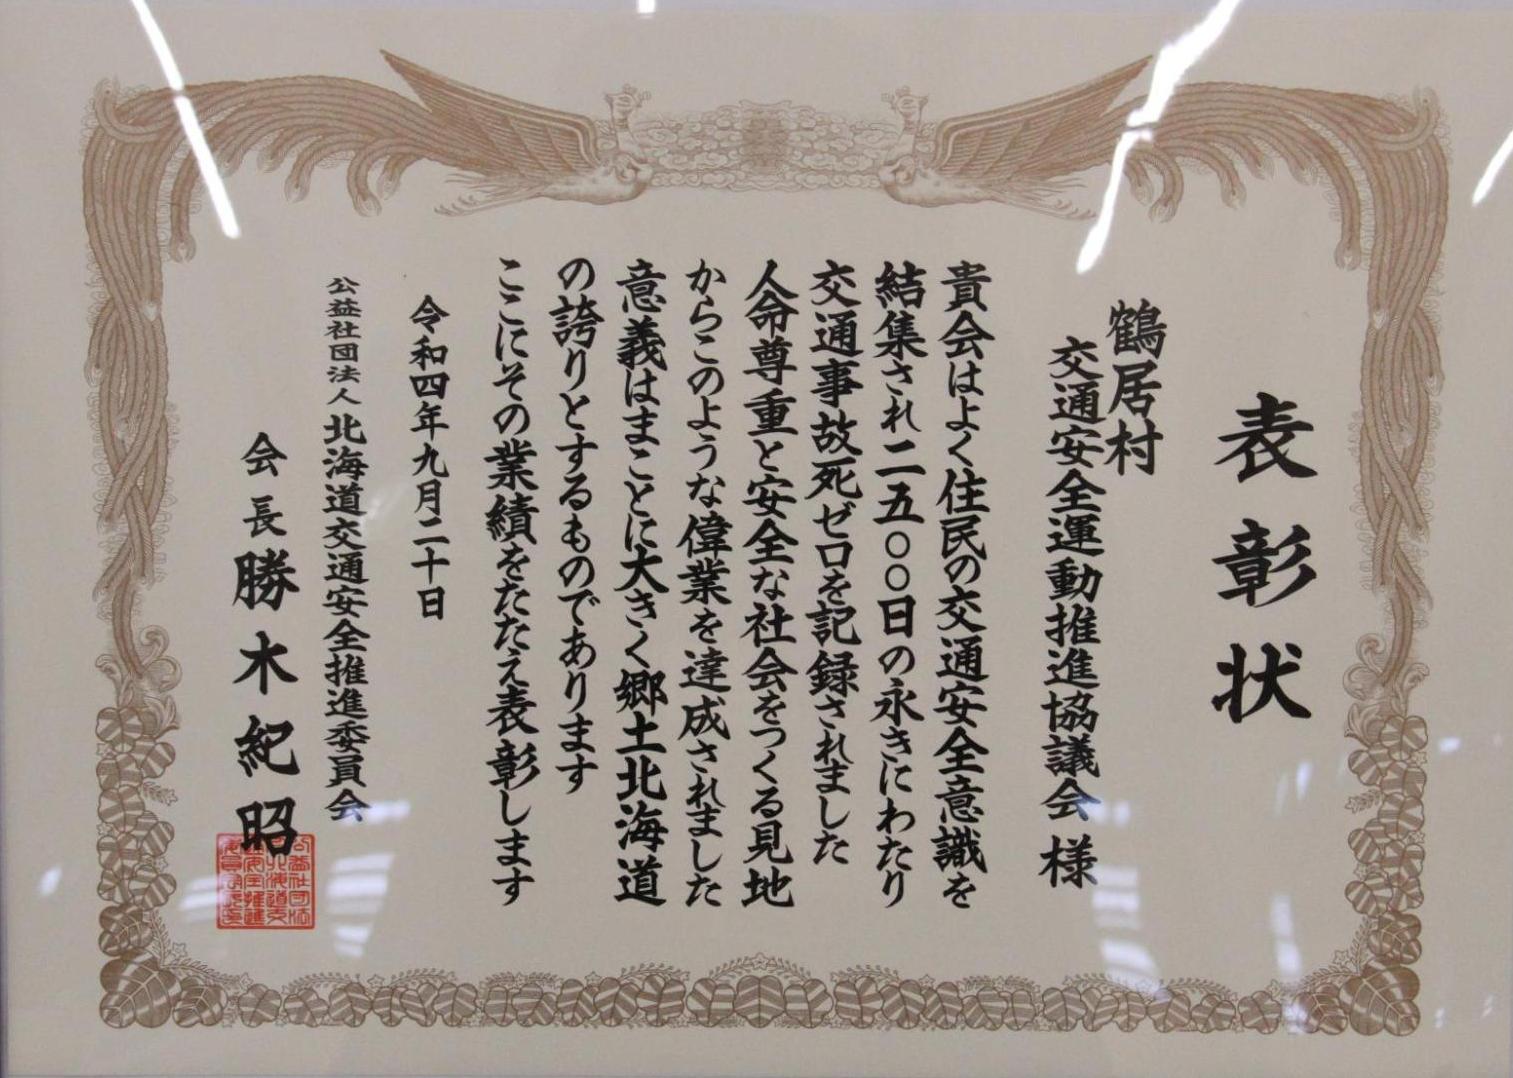 表彰状
鶴居村
交通安全運動推進協議会様
貴会はよく住民の交通安全意識を
結集され二五〇〇日の永きにわたり
交通事故死ゼロを記録されました
人命尊重と安全な社会をつくる見地
からこのような偉業を達成されました
意義はまことに大きく郷土北海道
の誇りとするものであります
ここにその業績をたたえ表彰します
令和四年九月二十日
公益社団法人北海道交通安全推進委員会
会長勝木紀昭